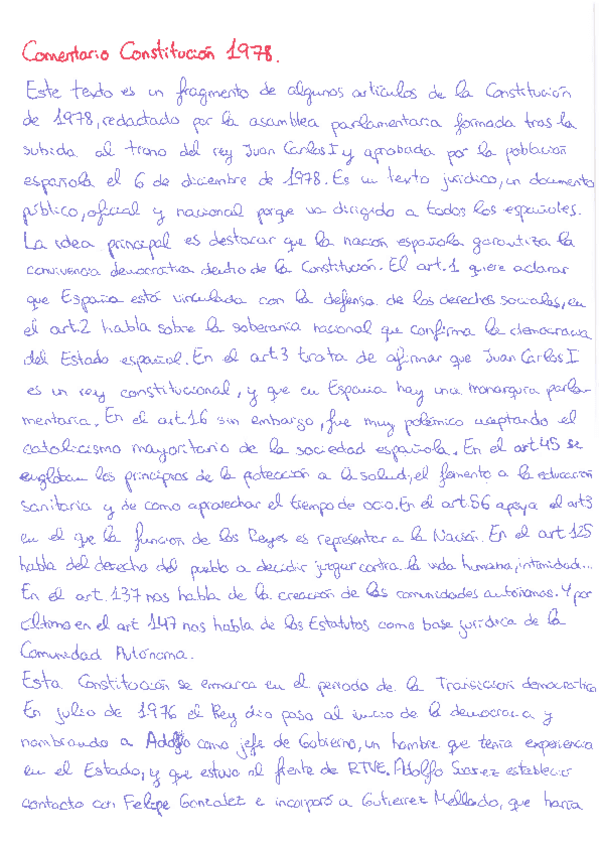 Comentario Constitución 1978.
Este texto es un fragmento de algunos artículos de la Constitución
de 1978, redactado por la asamblea parlamentaria formada tras la
subida al trono del rey Juan Carlos I y aprobada por la población
española el 6 de diciembre de 1978. Es un texto jurídico, un documento
público, oficial y nacional porque va dirigido a todos los españoles.
La idea principal es destacar que la nación española garantiza la
convivencia democrática dentro de la Constitución. El art.1 quiere aclarar
que España está vinculada con la defensa de los derechos sociales, en
el art2 habla sobre la soberanía nacional que confirma la democracia
del Estado español. En el art3 trata de afirmar que Juan Carlos I
es un rey constitucional, y que en España hay una monarquía parla-
mentaria. En el art.16 sin embargo, fue muy polémico aceptando el
catolicismo mayoritario de la sociedad española. En el art 45 se
engloban los principios de la protección a la salud, el fomento a la educación
sanitaria y de como aprovechar el tiempo de ocio. En el art.56 apoya el art3
en el que la función de los Reyes es representar a la Nación. En el art.125
habla del derecho del pueblo a decidir juzgar contra la vida humana, intimidad...
En el art.137 nos habla de la creación de las comunidades autónomas. Y por
último en el art 147 nos habla de los Estatutos como base jurídica de la
Comunidad Autónoma.
Esta Constitución se enmarca en el periodo de la Transición democrática
En julio de 1976 el Rey dio paso al inicio de la democracia y
nombrando a Adolfo como jefe de Gobierno, un hombre que tenía experiencia
en el Estado, y que estuvo al frente de RTVE. Adolfo Suarez estableció
contacto con Felipe Gonzalez e incorporó a Gutierrez Mellado, que haría